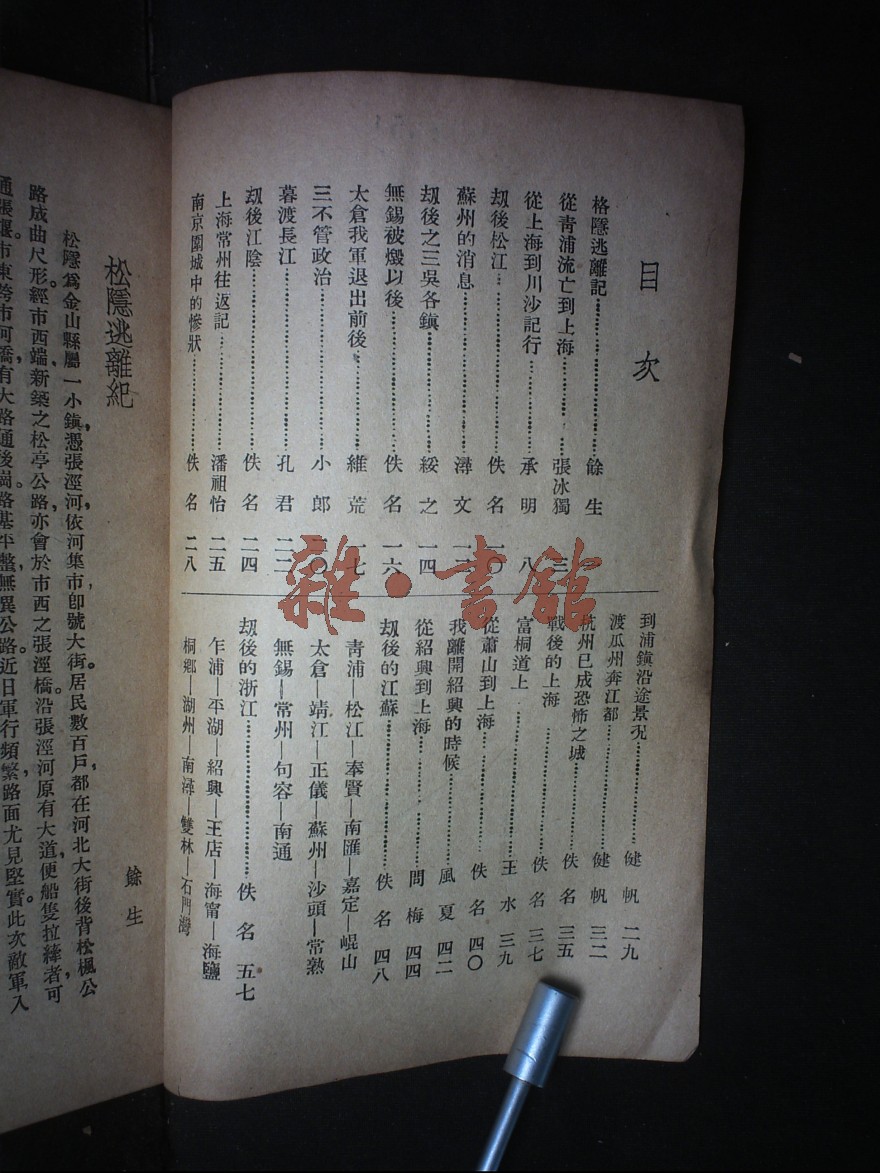 目次
格隱逃離記 餘生
從靑浦流亡到上海 張冰獨 三
從上海到川沙記行 承明 八
刧後松江 佚名 一〇
蘇州的消息 潯文
刧後之三吳各鎭 綏之 一四
無錫被燬以後 佚名 一六
太倉我軍退出前後 維荒 一七
三不管政治 小郎
暮渡長江 孔君 二二
刧後江陰 佚名 二四
上海常州往返記 潘祖怡 二五
南京圍城中的慘狀 佚名 二八
到浦鎭沿途景況 健帆 二九
渡瓜州奔江都 健帆 三二
杭州已成恐怖之城 佚名 三五
戰後的上海 佚名 三七
富桐道上 王水 三九
從蕭山到上海 佚名 四〇
我離開紹興的時候 風夏 四二
從紹興到上海 問梅 四四
刧後的江蘇 佚名 四八
靑浦—松江—奉賢—南匯—嘉定—崐山
太倉—靖江—正儀—蘇州—沙頭—常熟
無錫—常州—句容—南通
刧後的浙江 佚名 五七
乍浦—平湖—紹興—王店—海甯—海鹽
桐鄉—湖州—南潯—雙林—石門灣
松隱逃離紀
餘生
松隱爲金山縣屬一小鎭，憑張涇河，依河集市，卽號大街。居民數百戶，都在河北大街後背，松楓公
路成曲尺形，經市西端，新築之松亭公路，亦會於市西之張涇橋。沿張涇河原有大道，便船隻拉縴者，可
通張堰。市東跨市河橋，有大路通後崗，路基平整，無異公路。近日軍行頻繁，路面尤見堅實。此次敵軍入
雜·書館